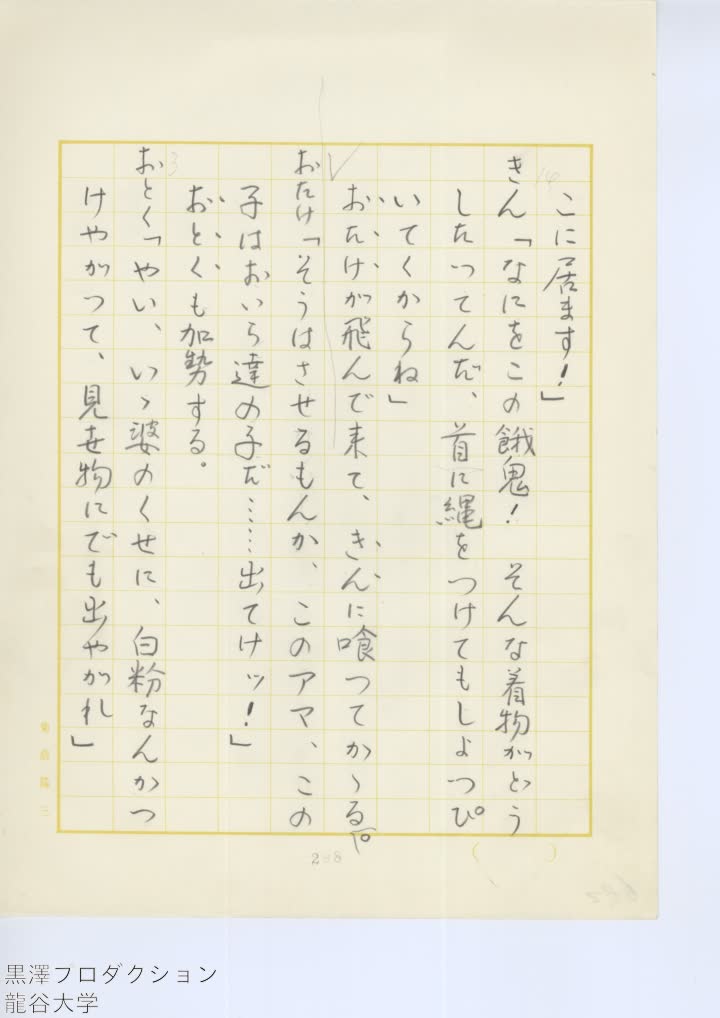 こに居ます！」
きん「なにをこの餓鬼！　そんな着物がどう
したってんだ、首に縄をつけてもしょっぴ
いてくからね」
おたけが飛んで来て、きんに喰ってかゝる。
おたけ「そうはさせるもんか、このアマ、この
子はおいら達の子だ……出てけッ！」
おとくも加勢する。
おとく「やい、いゝ婆のくせに、白粉なんかつ
けやがって、見世物にでも出やがれ」
14
3
298
菊島隆三
黒澤プロダクション
龍谷大学